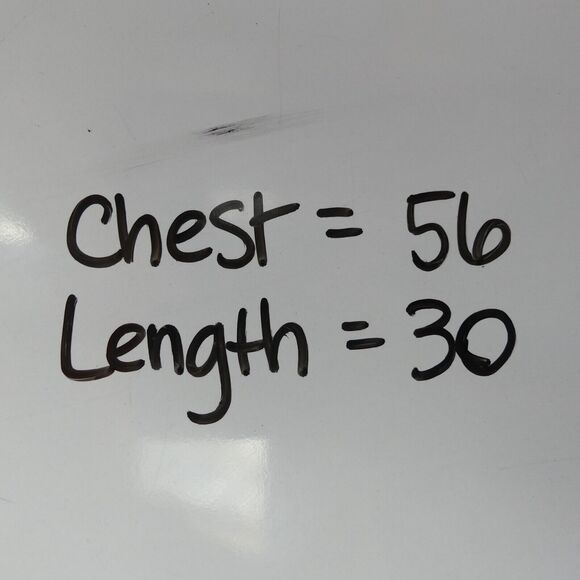 Chest = 56
Length = 30